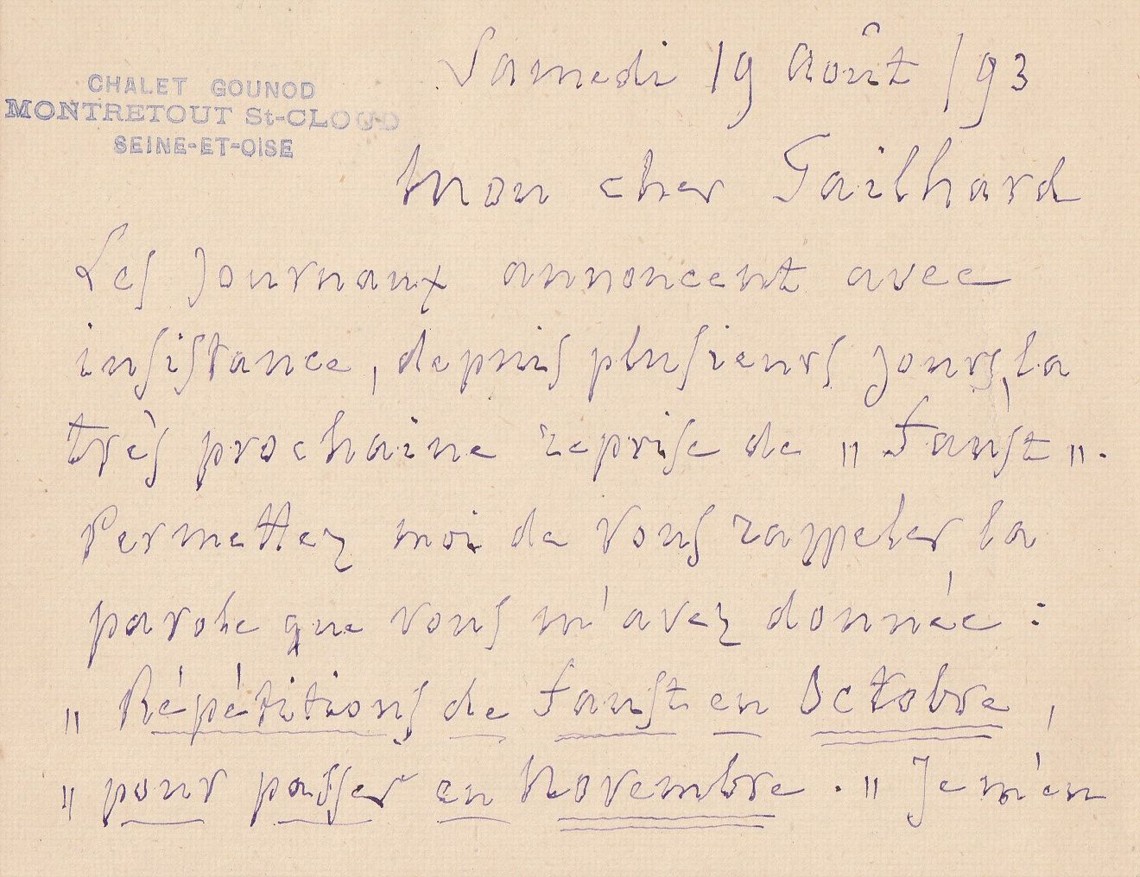 CHALET GOUNOD
MONTRETOUT St-CLOUD
SEINE-ET-OISE
Samedi 19 Août /93
Mon cher Gailhard
Les Journaux annoncent avec
insistance, depuis plusieurs jours, la
très prochaine reprise de „ Faust „.
Permettez moi de vous rappeler la
parole que vous m'avez donnée :
„ Répétitions de Faust en Octobre,
„ pour passer en Novembre. „ Je m'en